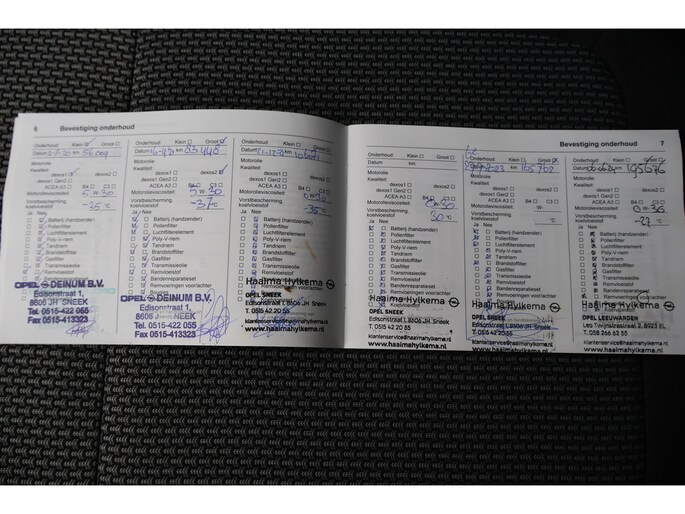 6 Bevestiging onderhoud
Onderhoud Klein Groot
Datum km 56009
Motorolie
Kwaliteit:
dexos1 dexos2
dexos1 Gen2
ACEA A3 B4 C3
Motorolieviscositeit: 5 w 30
Vorstbescherming koelvloeistof -25 °C
Ja Nee
Batterij (handzender)
Pollenfilter
Luchtfilterelement
Poly-V-riem
Tandriem
Brandstoffilter
Gasfilter
Transmissieolie
Remvloeistof
OPEL DEINUM B.V.
Edisonstraat 1,
8606 JH SNEEK
Tel. 0515-422 055
Fax 0515-413323
Onderhoud Klein Groot
Motorolie
Kwaliteit:
dexos1 dexos2
dexos1 Gen2
ACEA A3 B4 C3
Motorolieviscositeit:
Vorstbescherming koelvloeistof -37 °C
Ja Nee
Batterij (handzender)
Pollenfilter
Luchtfilterelement
Poly-V-riem
Tandriem
Brandstoffilter
Gasfilter
Transmissieolie
Remvloeistof
Bandenreparatieset
Remvoeringen voor/achter
OPEL DEINUM B.V.
Edisonstraat 1,
8606 J NEEK
Tel. 0515-422 055
Fax 0515-413323
Onderhoud Klein Groot
Motorolie
Kwaliteit:
dexos1 dexos2
dexos1 Gen2
ACEA A3 B4 C3
Motorolieviscositeit:
Vorstbescherming koelvloeistof -35 °C
Ja Nee
Batterij (handzender)
Pollenfilter
Luchtfilterelement
Poly-V-riem
Tandriem
Brandstoffilter
Gasfilter
Transmissieolie
Remvloeistof
Bandenreparatieset
Remvoeringen voor/achter
Haaima Hylkema
OPEL SNEEK
Edisonstraat 1, 8606 JH Sneek
T. 0515 42 20 55
klantenservice@haaimahylkema.nl
www.haaimahylkema.nl
Bevestiging onderhoud 7
Onderhoud Klein Groot
Datum km
Motorolie
Kwaliteit:
dexos1 dexos2
dexos1 Gen2
ACEA A3 B4 C3
Motorolieviscositeit:
Vorstbescherming koelvloeistof 30 °C
Ja Nee
Batterij (handzender)
Pollenfilter
Luchtfilterelement
Poly-V-riem
Tandriem
Brandstoffilter
Gasfilter
Transmissieolie
Remvloeistof
Bandenreparatieset
Remvoeringen voor/achter
Haaima Hylkema
OPEL SNEEK
Edisonstraat 1, 8606 JH Sneek
T. 0515 42 20 55
klantenservice@haaimahylkema.nl
www.haaimahylkema.nl
Onderhoud Klein Groot
Motorolie
Kwaliteit:
dexos1 dexos2
dexos1 Gen2
ACEA A3 B4 C3
Motorolieviscositeit:
Vorstbescherming koelvloeistof °C
Ja Nee
Batterij (handzender)
Pollenfilter
Luchtfilterelement
Poly-V-riem
Tandriem
Brandstoffilter
Gasfilter
Transmissieolie
Remvloeistof
Bandenreparatieset
Remvoeringen voor/achter
Haaima Hylkema
OPEL SNEEK
Edisonstraat 1, 8606 JH Sneek
T. 0515 42 20 55
klantenservice@haaimahylkema.nl
www.haaimahylkema.nl
Onderhoud Klein Groot
Datum 195676
Motorolie
Kwaliteit:
dexos1 dexos2
dexos1 Gen2
ACEA A3 B4 C3
Motorolieviscositeit:
Vorstbescherming koelvloeistof -27 °C
Ja Nee
Batterij (handzender)
Pollenfilter
Luchtfilterelement
Poly-V-riem
Tandriem
Brandstoffilter
Gasfilter
Transmissieolie
Remvloeistof
Bandenreparatieset
Remvoeringen voor/achter
Haaima Hylkema
OPEL LEEUWARDEN
T. 058 266 63 55
klantenservice@haaimahylkema.nl
www.haaimahylkema.nl